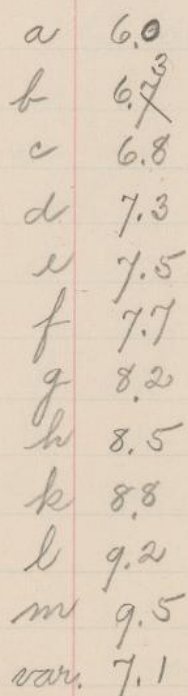 a 6.0
b 6.3
c 6.8
d 7.3
e 7.5
f 7.7
g 8.2
h 8.5
k 8.8
l 9.2
m 9.5
var. 7.1